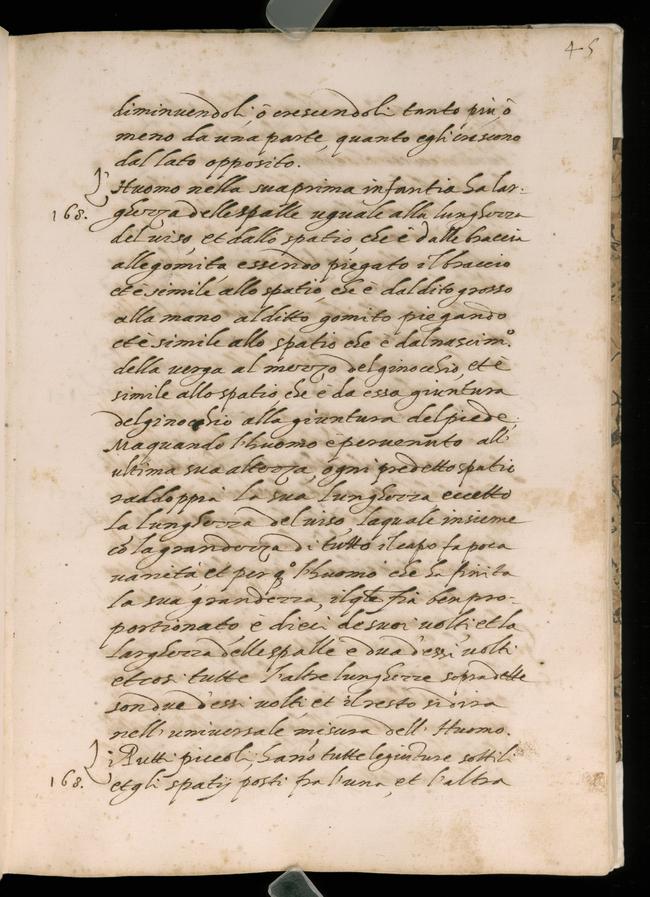 45
diminuendoli, ò crescendoli tanto più ò
meno da una parte, quanto egli crescono
dal lato opposito.
L'Huomo nella sua prima infantia ha lar-
168. ghezza delle spalle uguale alla lunghezza
del uiso, et dallo spatio, che è dalle braccia
alle gomita essendo piegato il braccio
et è simile allo spatio, che è dal dito grosso
alla mano al ditto gomito piegando
et è simile allo spatio che è dal nascim.º
della verga al mezzo del ginocchio, et è
simile allo spatio che è da essa giuntura
del ginocchio alla giuntura del piede.
Ma quando l'huomo è pervenuto all'
ultima sua altezza, ogni predetto spatio
raddoppia la sua lunghezza eccetto
la lunghezza del uiso, laquale insieme
cò la grandezza di tutto il capo fa poca
uarietà, et per qº l'huomo che ha finita
la sua grandezza, il qle sia ben pro-
portionato è dieci de suoi volti, et la
larghezza delle spalle è dua d'essi volti
et così tutte l'altre lunghezze sopradette
son due d'essi volti, et il resto si dirà
nell'universale misura dell'Huomo.
i Putti piccoli, hanò tutte le giunture sottili
168. et gli spatij posti fra l'una, et l'altra